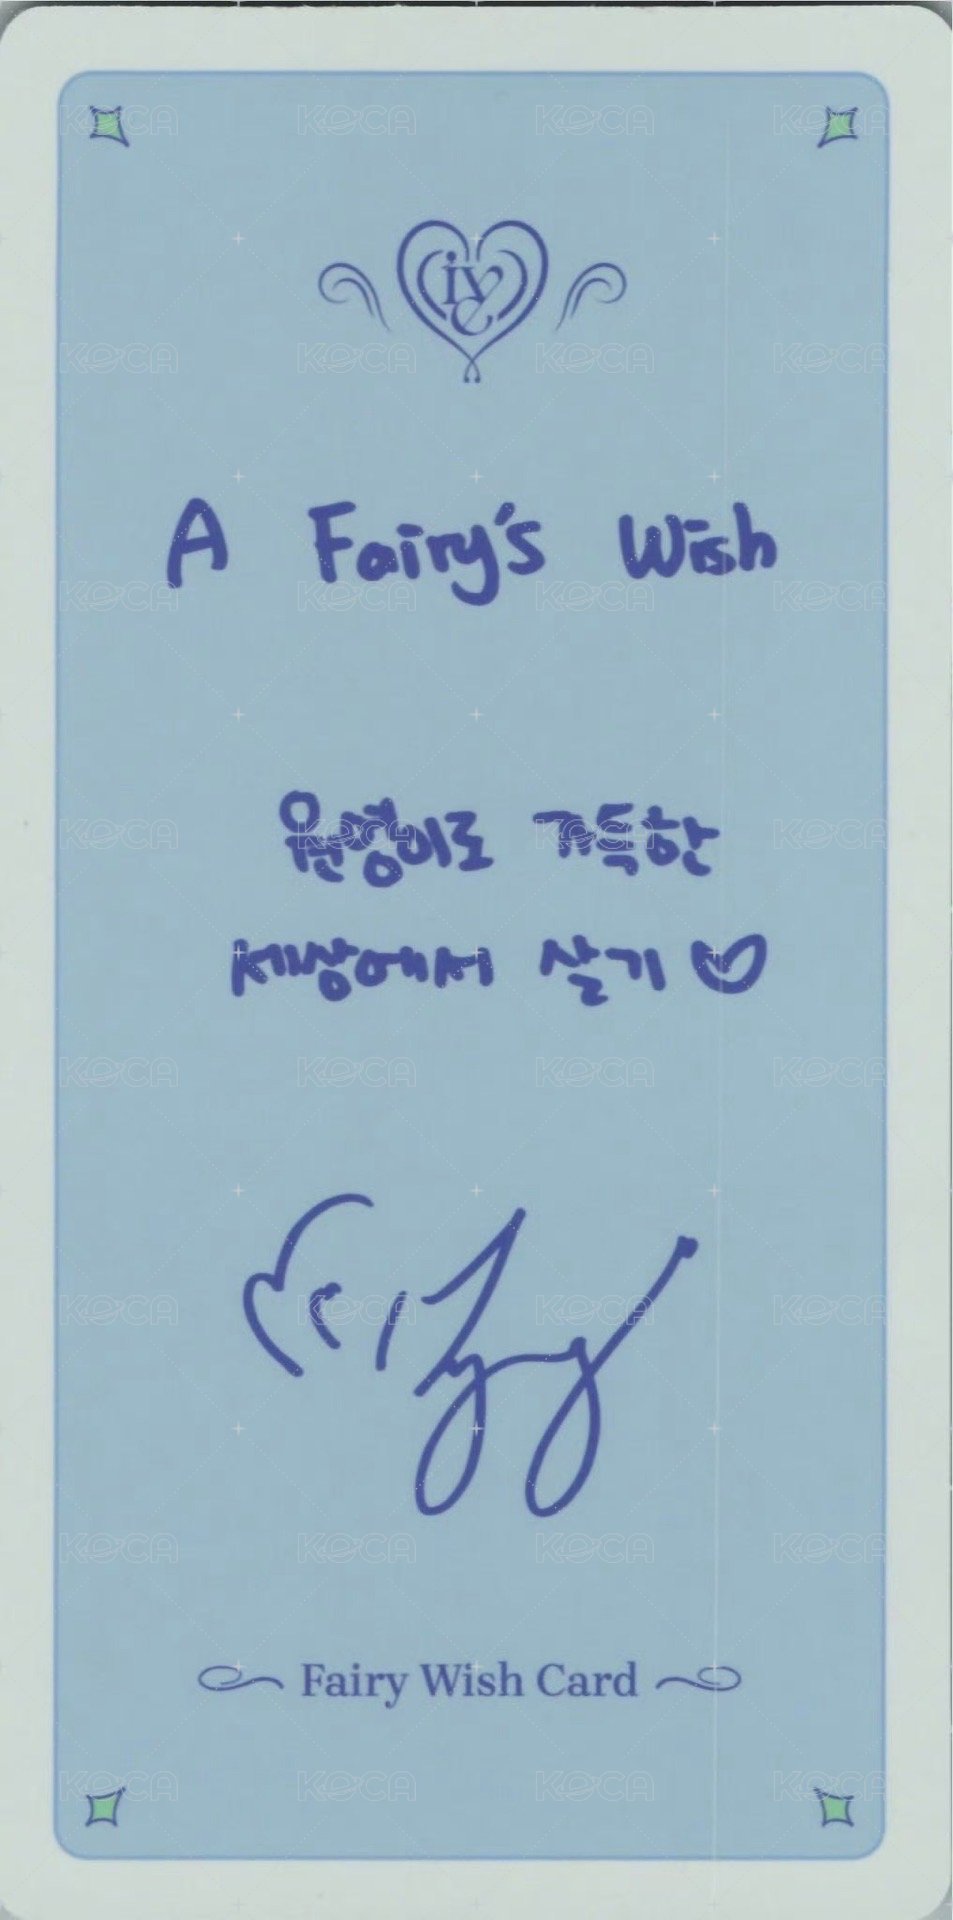 ive
A Fairy's Wish
원영이로 가득한
세상에서 살기♡
Fairy Wish Card
KOCA